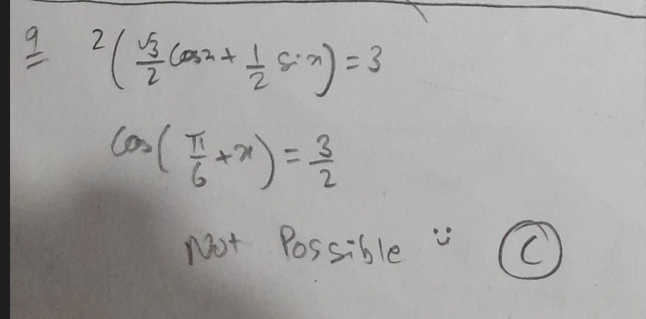 9 2(√3/2 Cosx + 1/2 sinx) = 3
Cos(π/6 + x) = 3/2
Not Possible :) (C)